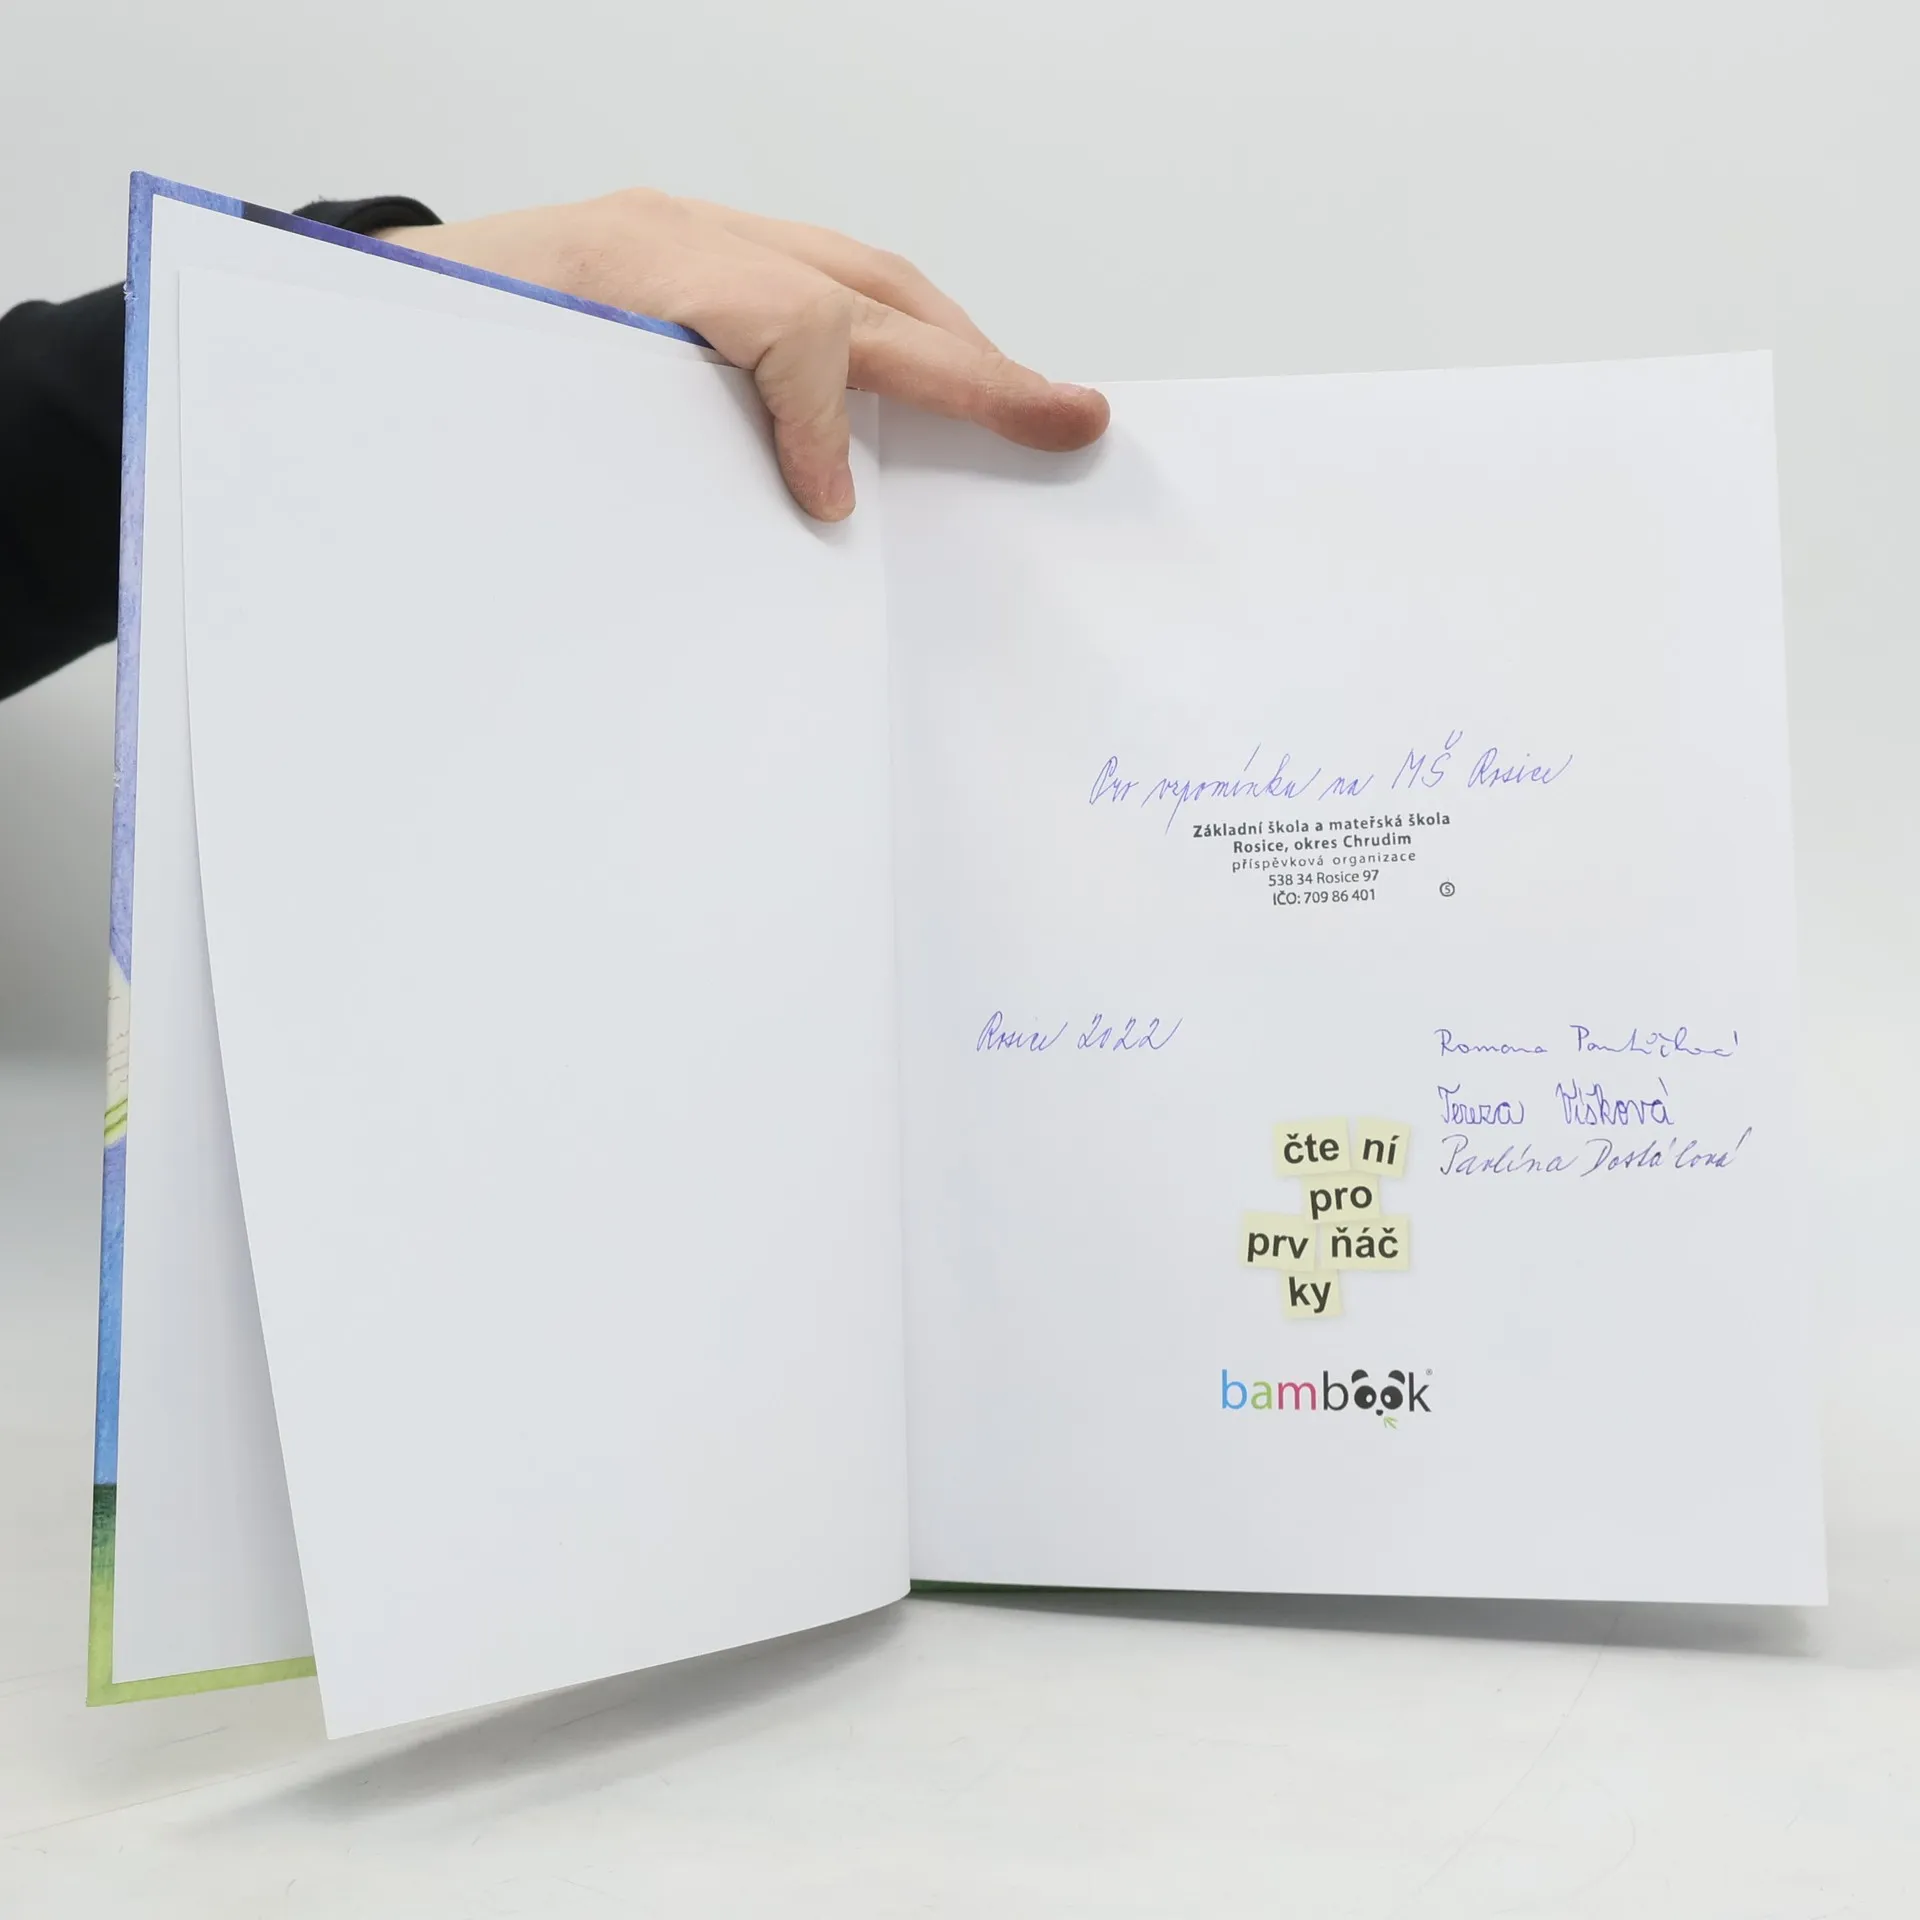 Pro vzpomínku na MŠ Rosice
Základní škola a mateřská škola
Rosice, okres Chrudim
příspěvková organizace
538 34 Rosice 97
IČO: 709 86 401
5
Rosice 2022
Romana
Tereza Víšková
Pavlína Dostálová
čte ní
pro
prv ňáč
ky
bambook®